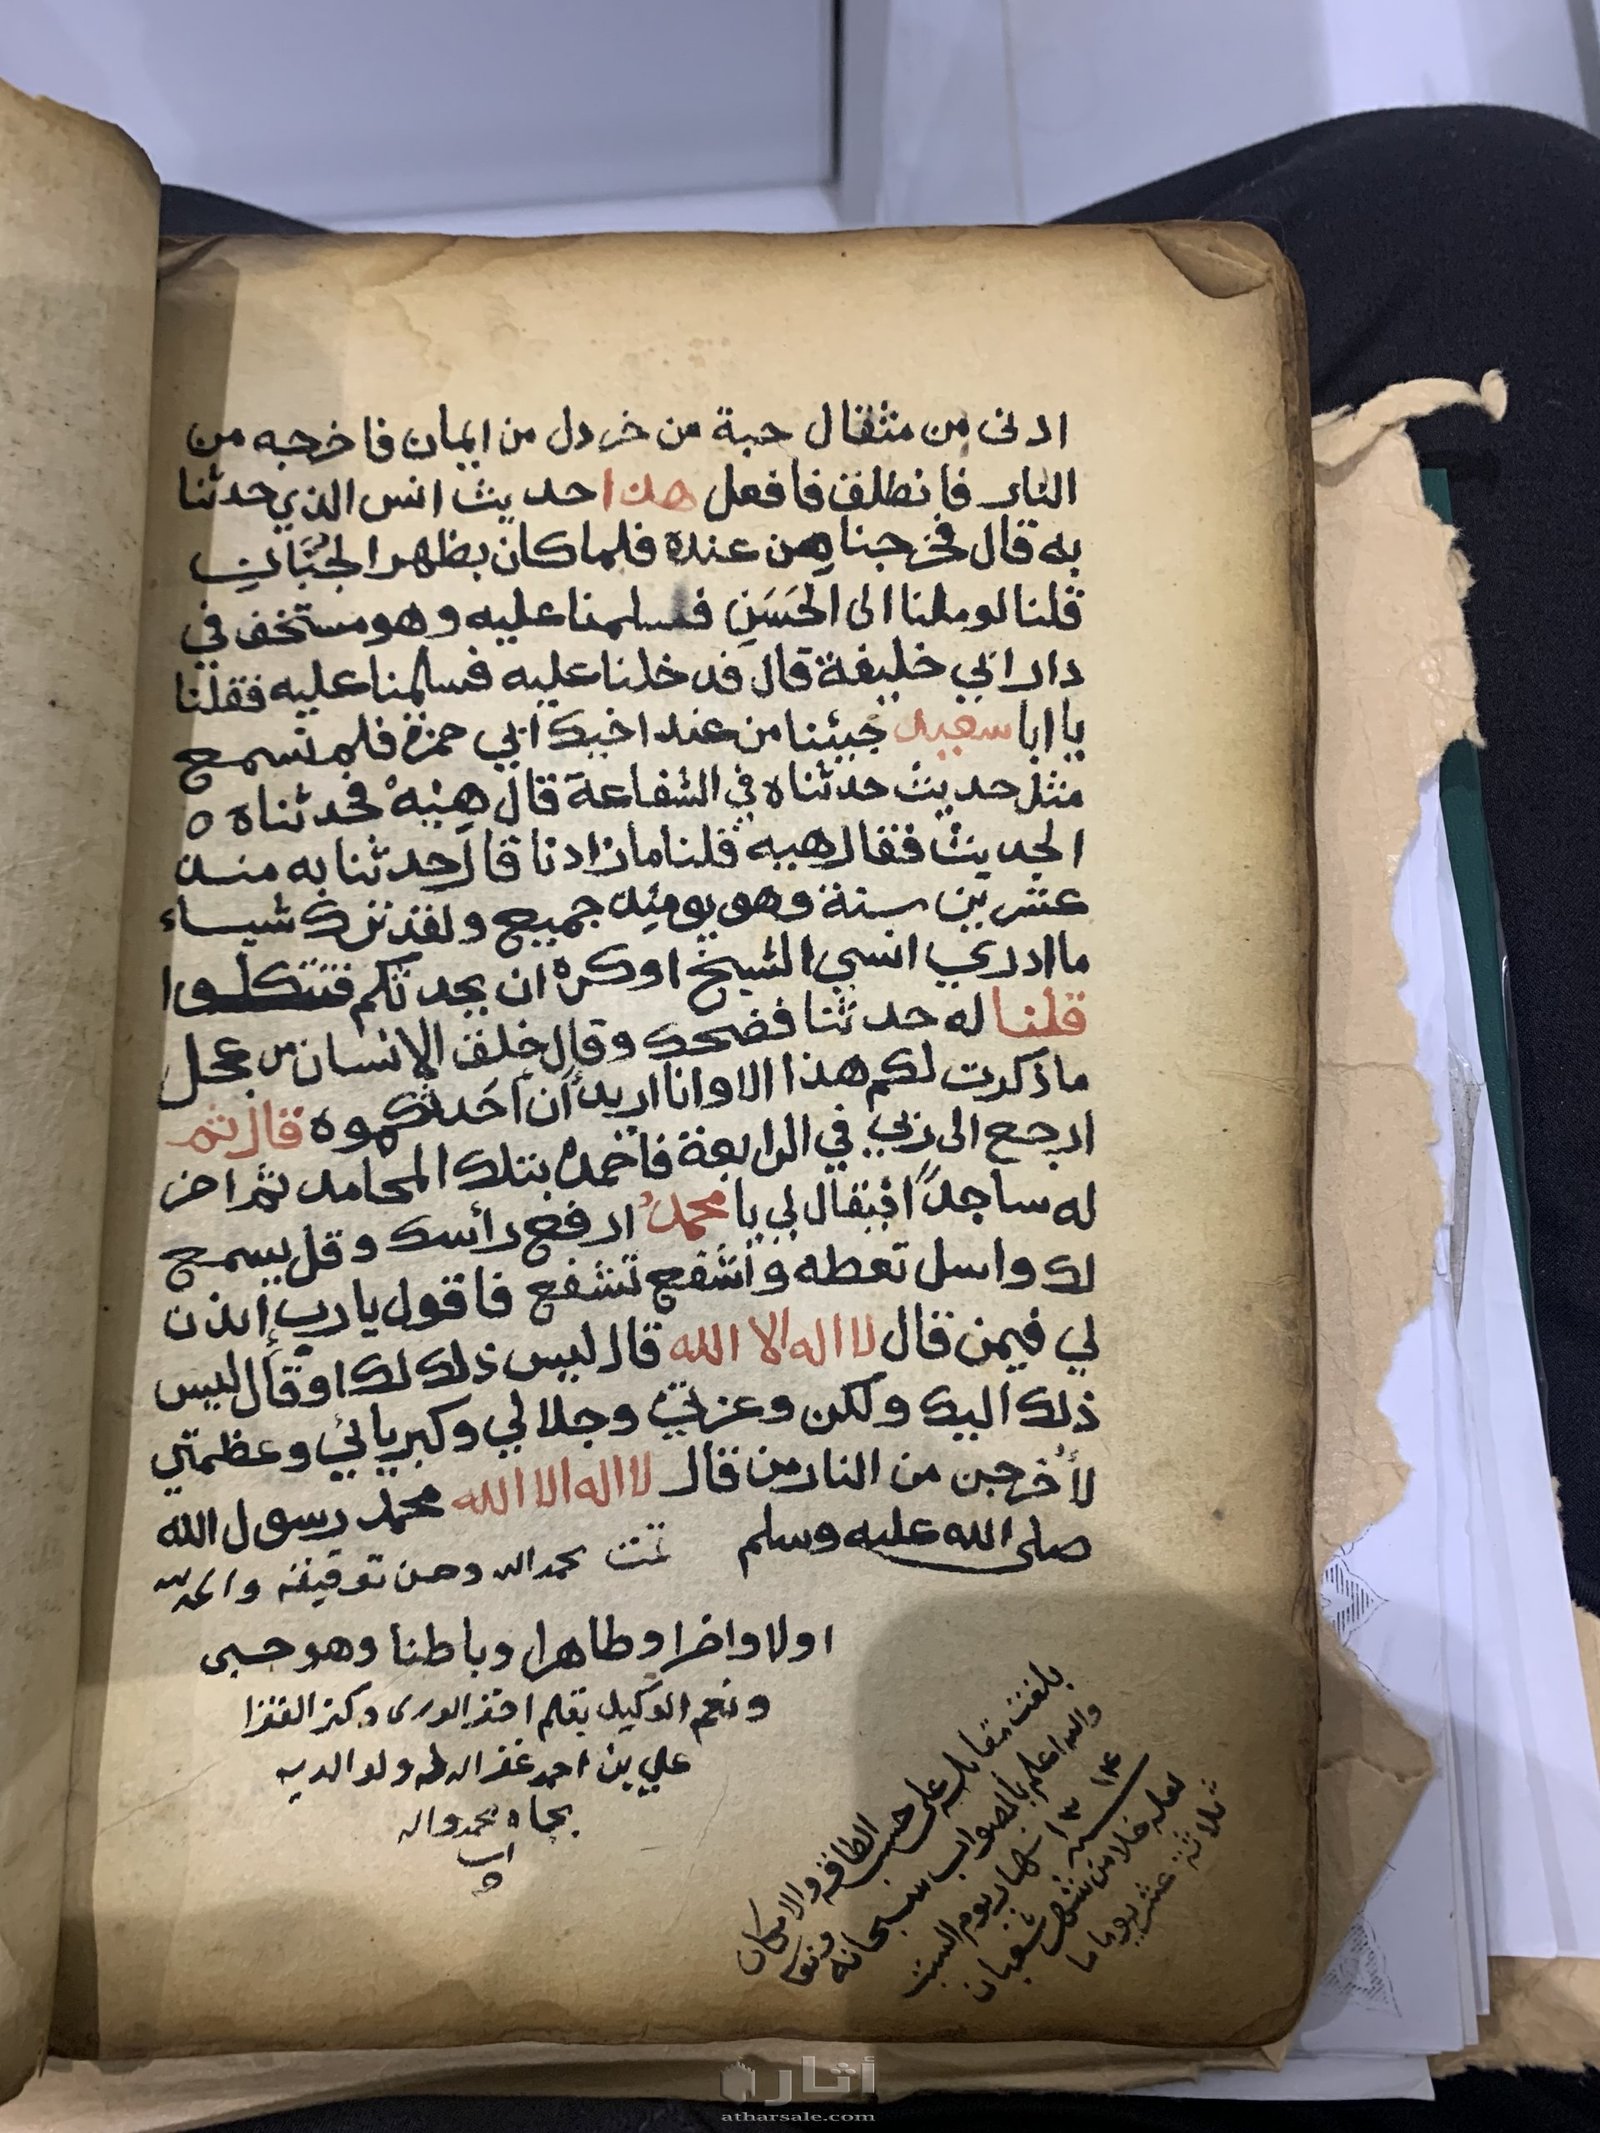 ادنى من مثقال حبة من خردل من ايمان فاخرجه من
النار فانطلق فافعل هذا حديث انس الذي حدثنا
به قال فخرجنا من عنده فلما كان بظهر الجبَّان
قلنا لو ملنا الى الحَسَنِ فسلمنا عليه وهو مستخف في
دار ابي خليفة قال فدخلنا عليه فسلمنا عليه فقلنا
يا ابا سعيد جئنا من عند اخيك ابي حمزة فلم نسمع
مثل حديث حدثناه في الشفاعة قال هِيْهْ فحدثناه ه
الحديث فقال هيه قلنا ما زادنا قال حدثنا به منذ
عشرين سنة وهو يومئذ جميع ولقد ترك شياء
ما ادري انسي الشيخ او كره ان يحدثكم فتتكلوا
قلنا له حدثنا فضحك وقال خلق الإنسان من عجل
ما ذكرت لكم هذا الا وانا اريد أن أحدثكموه قال ثم
ارجع الى ربي في الرابعة فاحمده بتلك المحامد ثم اخر
له ساجداً فيقال لي يا محمدُ ارفع رأسك وقل يسمع
لك واسل تعطه واشفع تشفع فاقول يا رب إئذن
لي فيمن قال لا اله الا الله قال ليس ذلك لك او قال ليس
ذلك اليك ولكن وعزتي وجلالي وكبريائي وعظمتي
لأخرجن من النار من قال لا اله الا الله محمد رسول الله
صلى الله عليه وسلم تمت بحمد الله وحسن توفيقه والحمد لله
اولا واخرا وظاهرا وباطنا وهو حسبي
ونعم الوكيل بقلم افقر الورى وكنز الفقرا
علي بن احمد غفر الله له ولوالديه
بجاه محمد واله
بلغت مقابلة على حسب الطاقة والامكان
والله اعلم بالصواب سبحانه وتعا
نهار يوم السبت
لعله خلا من شهر شعبان
ثلاثة عشر يوما
أثار
atharsale.com